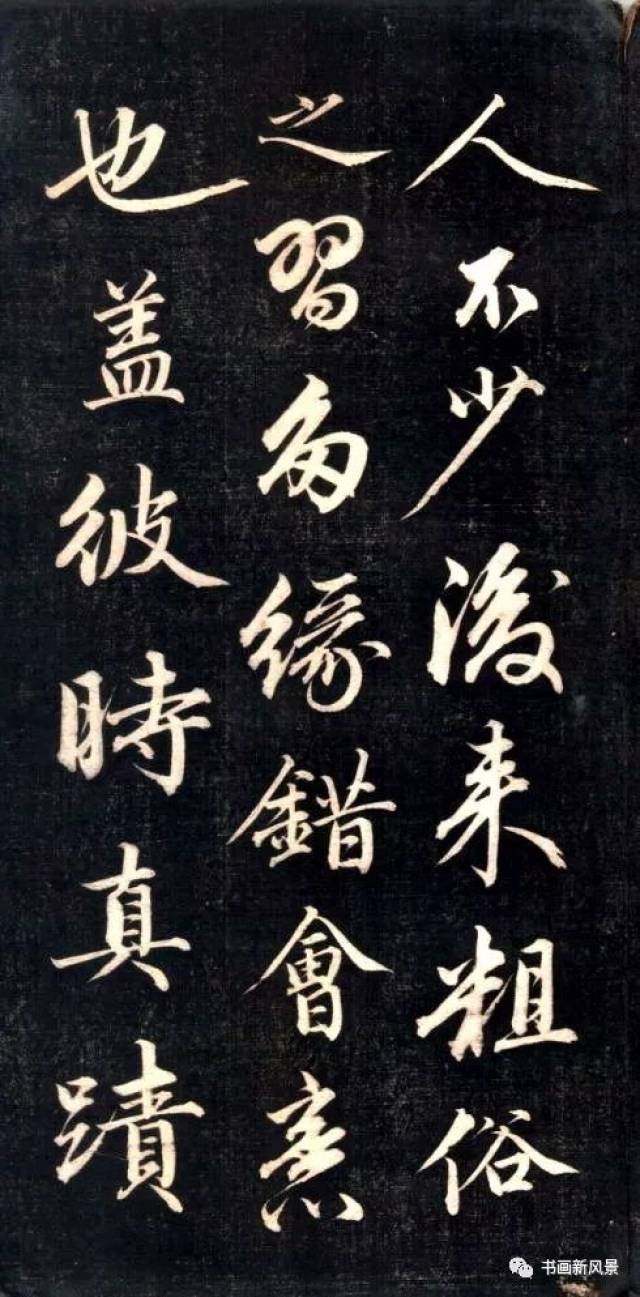 人不少後来粗俗
之習多緣錯會意
也盖彼時真蹟
书画新风景